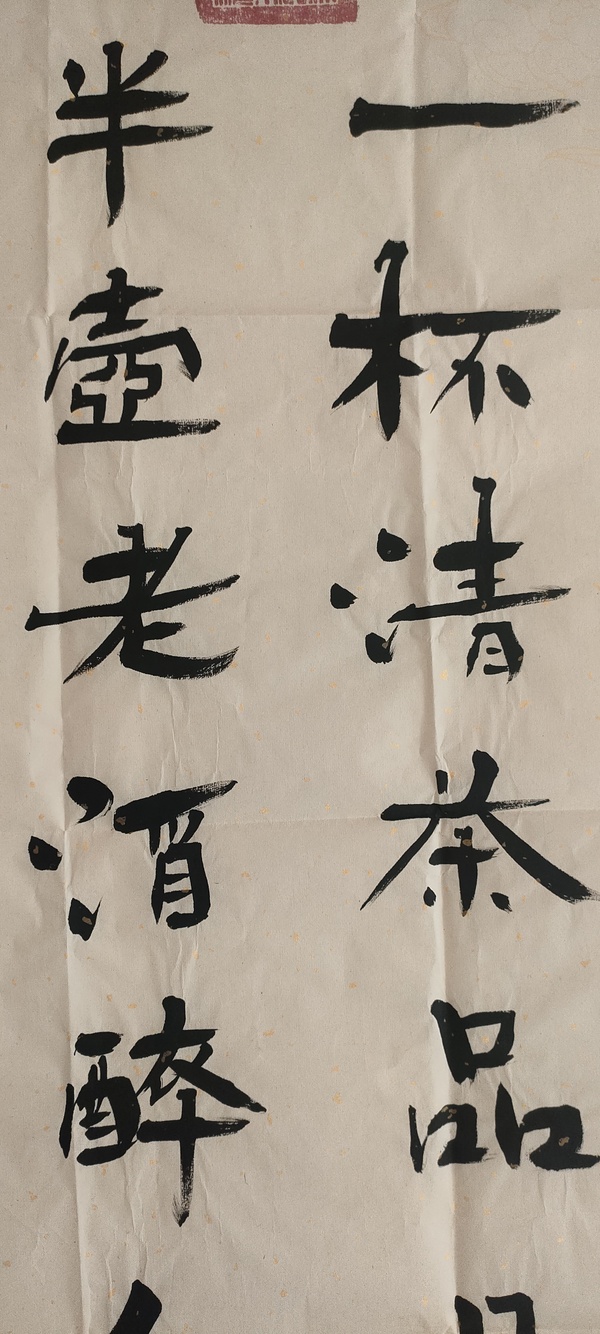 一杯清茶品
半壺老酒醉